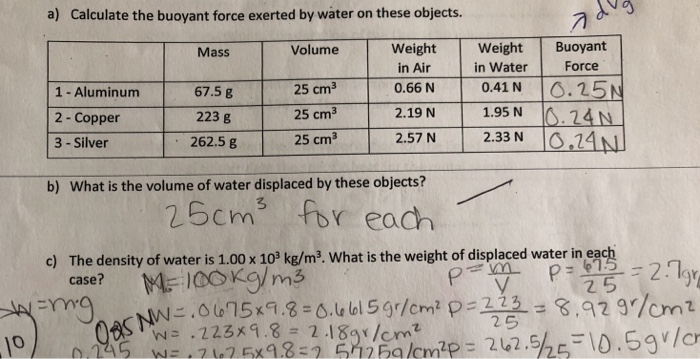 a) Calculate the buoyant force exerted by water on these objects.
↗ dvg
Mass Volume Weight in Air Weight in Water Buoyant Force
1 - Aluminum 67.5 g 25 cm³ 0.66 N 0.41 N 0.25N
2 - Copper 223 g 25 cm³ 2.19 N 1.95 N 0.24N
3 - Silver 262.5 g 25 cm³ 2.57 N 2.33 N 0.24N
b) What is the volume of water displaced by these objects?
25cm³ for each
c) The density of water is 1.00 x 10³ kg/m³. What is the weight of displaced water in each
case? M=100kg/m³ P=m/V P=67.5/25=2.7gr
W=mg
W=.0675x9.8=0.6615gr/cm² P=223/25=8.92gr/cm²
W=.223x9.8=2.18gr/cm²
10
0.245 W=.2625x9.8=2.5725g/cm² P=262.5/25=10.5gr/c